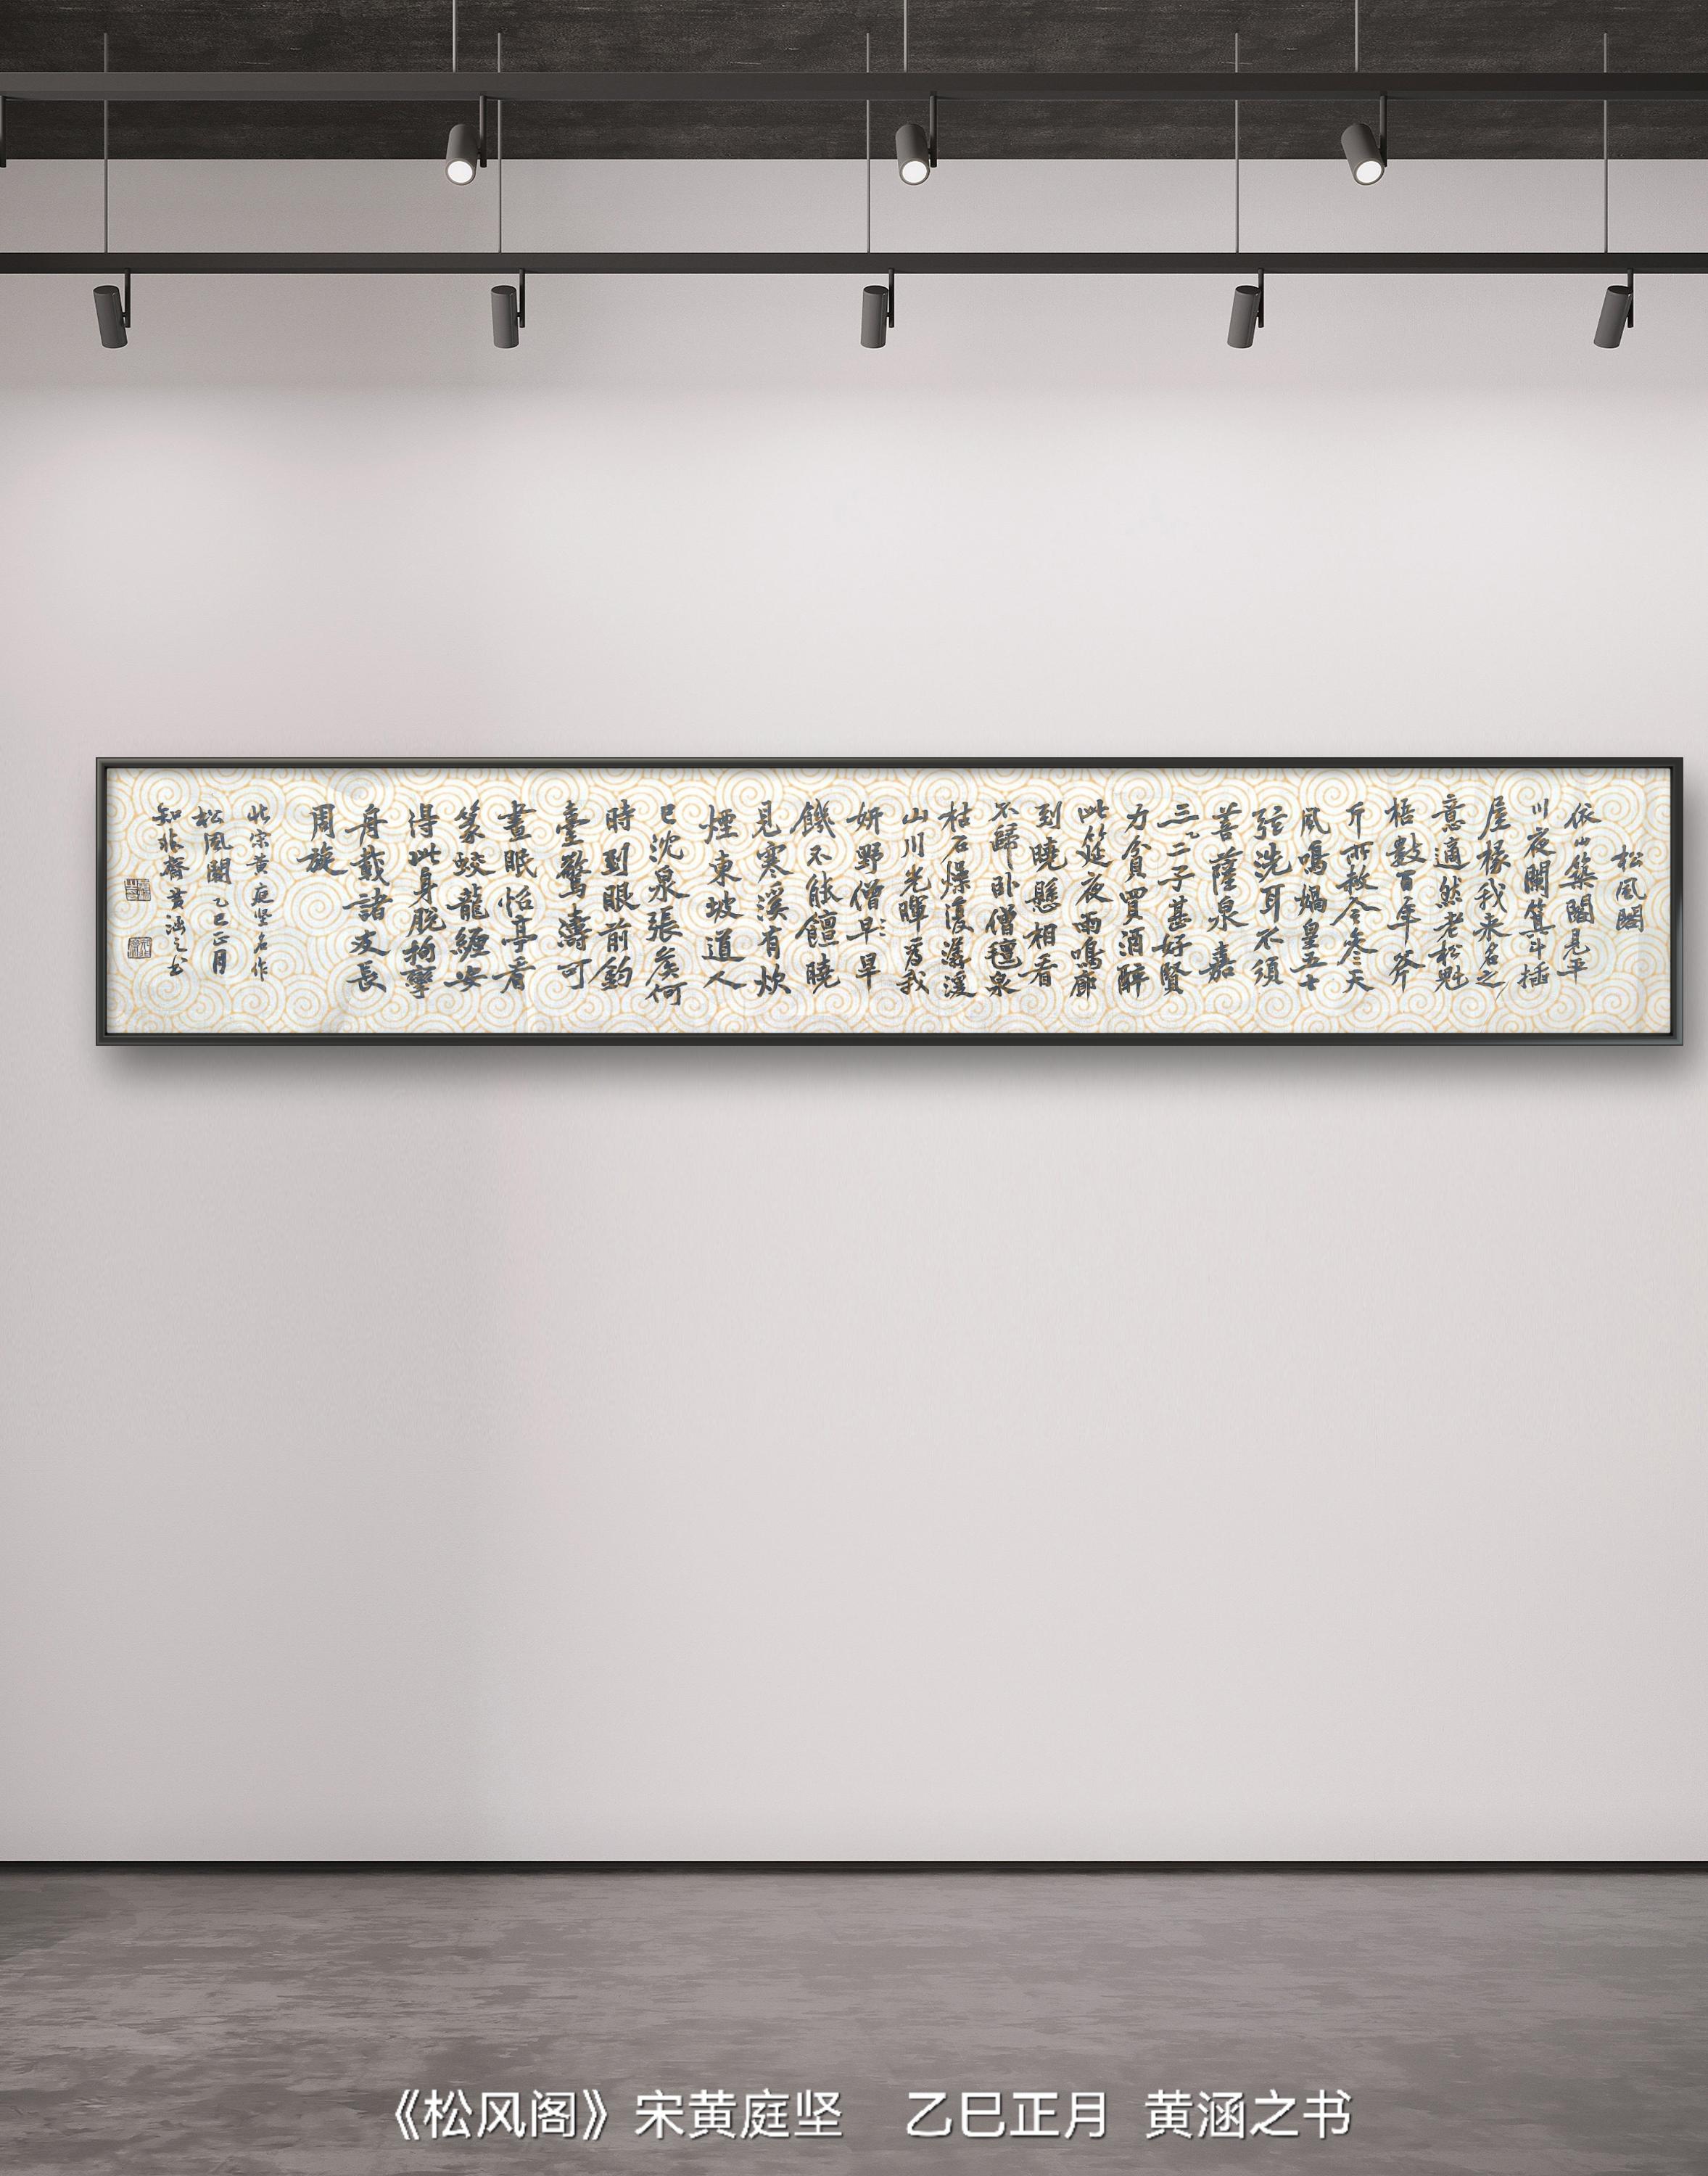 松風閣
依山築閣見平
川夜闌箕斗插
屋椽我来名之
意適然老松魁
梧數百年斧
斤所赦今參天
風鳴媧皇五十
弦洗耳不須
菩薩泉嘉
三二子甚好賢
力貧買酒醉
此筵夜雨鳴廊
到曉懸相看
不歸卧僧氊泉
枯石燥復潺湲
山川光暉為我
妍野僧早旱
饑不能饘曉
見寒溪有炊
煙東坡道人
已沈泉張侯何
時到眼前釣
臺驚濤可
晝眠怡亭看
篆蛟龍纏安
得此身脫拘攣
舟載諸友長
周旋
此宋黄庭坚名作
松風閣乙巳正月
知非齋黄涵之书
《松风阁》宋黄庭坚 乙巳正月 黄涵之书